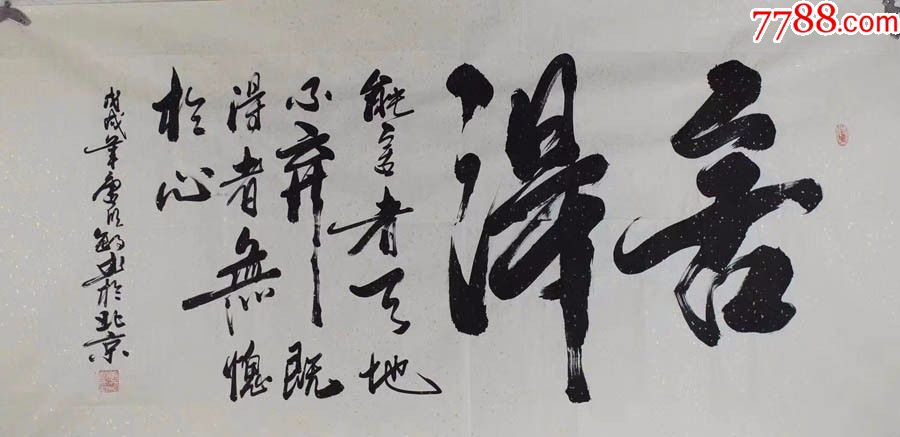 7788.com
舍得
能舍者天地
不弃既
得者無愧
於心
戊戌年 书於北京